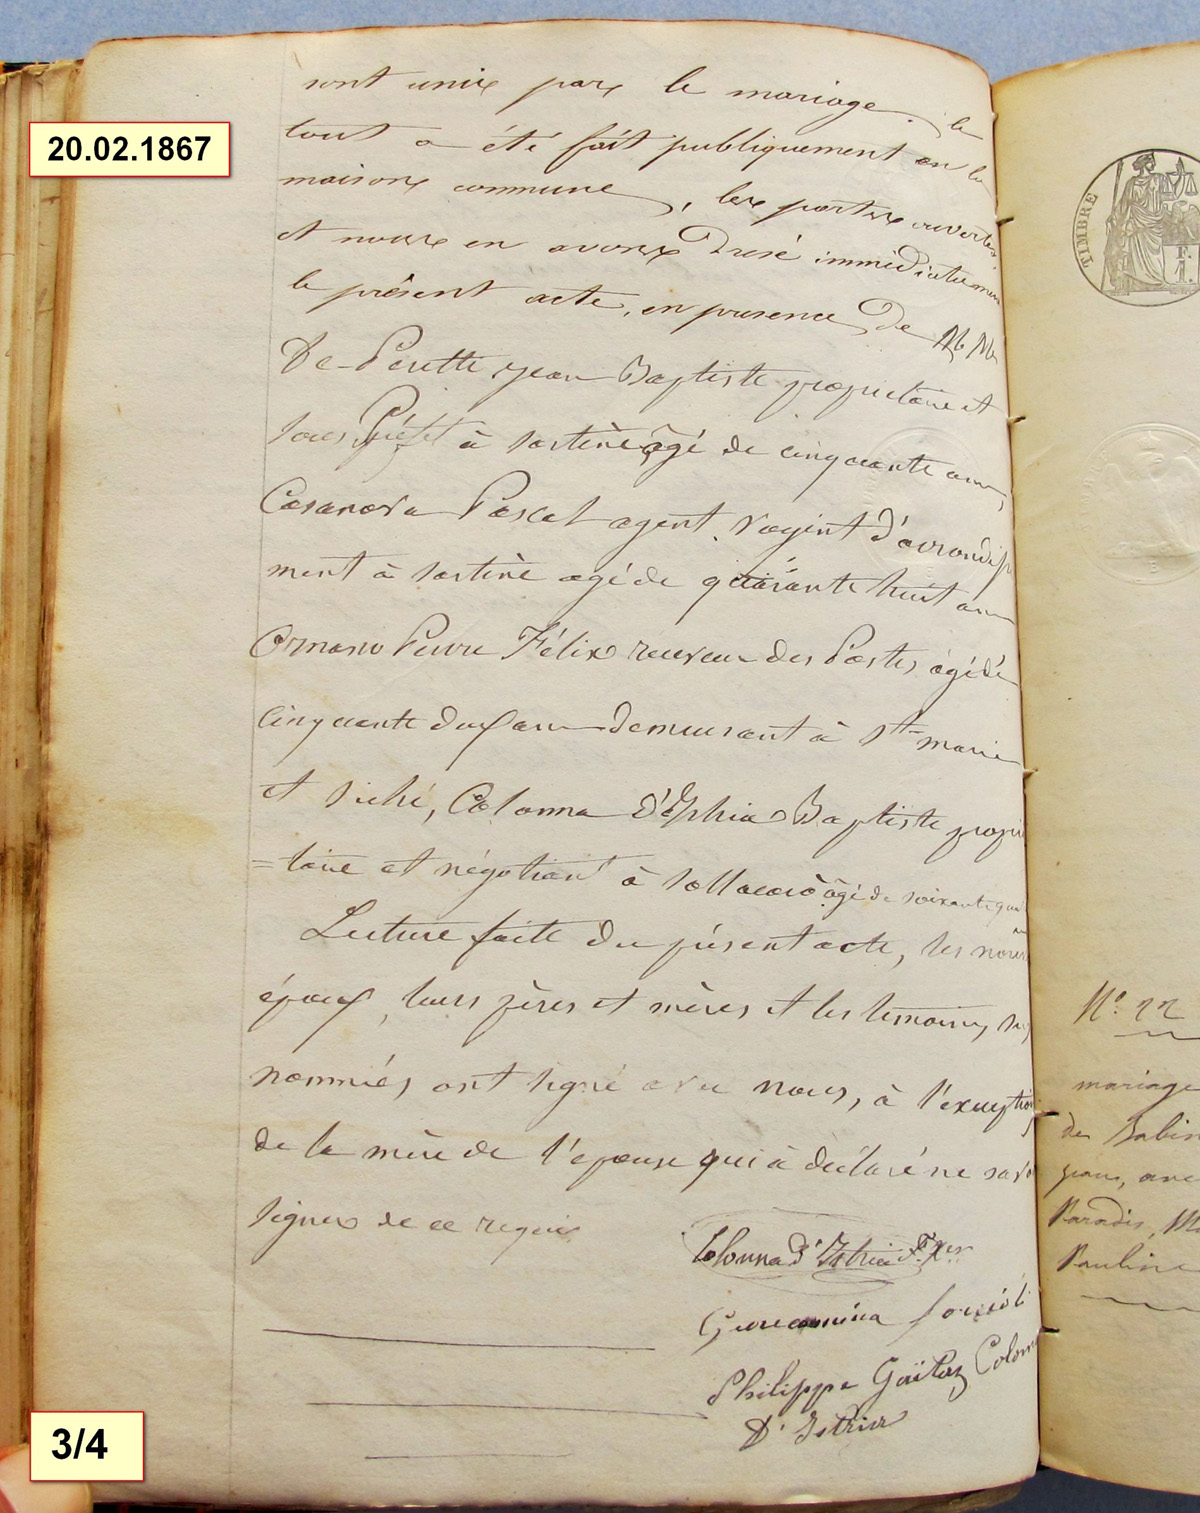 20.02.1867
sont unis par le mariage. le
tout a été fait publiquement en la
maison commune, les portes ouvertes
et nous en avons dressé immédiatement
le présent acte, en presence de MM
De-Peretti Jean Baptiste propriétaire et
sous Préfet à Sartène âgé de cinquante ans,
Casanova Pascal agent voyent d'arrondiss
ment à Sartène agé de quarante huit ans
Ornano Pierre Félix receveur des Postes, âgé de
cinquante deux ans demeurant à Ste marie
et siché, Colonna d'Istria Baptiste propri
=taire et négotiant à Sollacarò âgé de soixante quatre
ans
Lecture faite du présent acte, les nouv
époux, leurs pères et mères et les témoins, sus
nommés, ont signé avec nous, à l'exception
de la mère de l'epouse qui a déclaré ne savoir
signer de ce requis
Colonna d'Istria F. Xer
Giurcamina Forcioli
Philippe Gaëtan Colonna
D'Istria
3/4
TIMBRE
F.
1.
No. 22
mariage
de Sabin
Jean, avec
Paradis, M
Pauline